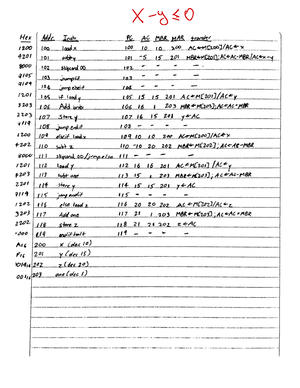 X - y ≤ 0
Hex Addr. Instr. PC AC MBR MAR transfer
1200 100 load x 100 10 10 200 AC←M[200]/AC←x
4201 101 subt y 101 -5 15 201
8000 102 skipcond 00 102 - - -
9105 103 jump if 103 - - -
104 104 - - -
1201 105 if load y 105 15 15 201 AC←M[201]/AC←y
3203 106 Add one 106 16 1 203 MBR←M[203], AC←AC+MBR
2201 107 Store y 107 16 15 203 y←AC
108 108 - - -
1200 109 109 10 10 200 AC←M[200]/AC←x
4202 110 subt z 110 -10 20 202 MBR←M[202], AC←AC-MBR
8000 111 111 - - -
1201 112 load y 112 16 16 201 AC←M[201]/AC←y
4203 113 subt one 113 15 1 203 MBR←M[203], AC←AC-MBR
2201 114 store y 114 15 15 201 y←AC
115 115 - - -
1202 116 else load z 116 20 20 202 AC←M[202]/AC←z
3203 117 Add one 117 21 1 203 MBR←M[203], AC←AC+MBR
2202 118 store z 118 21 21 202 z←AC
119 119 - - -
200 x (dec 10)
201 y (dec 15)
202 z (dec 20)
203 one (dec 1)